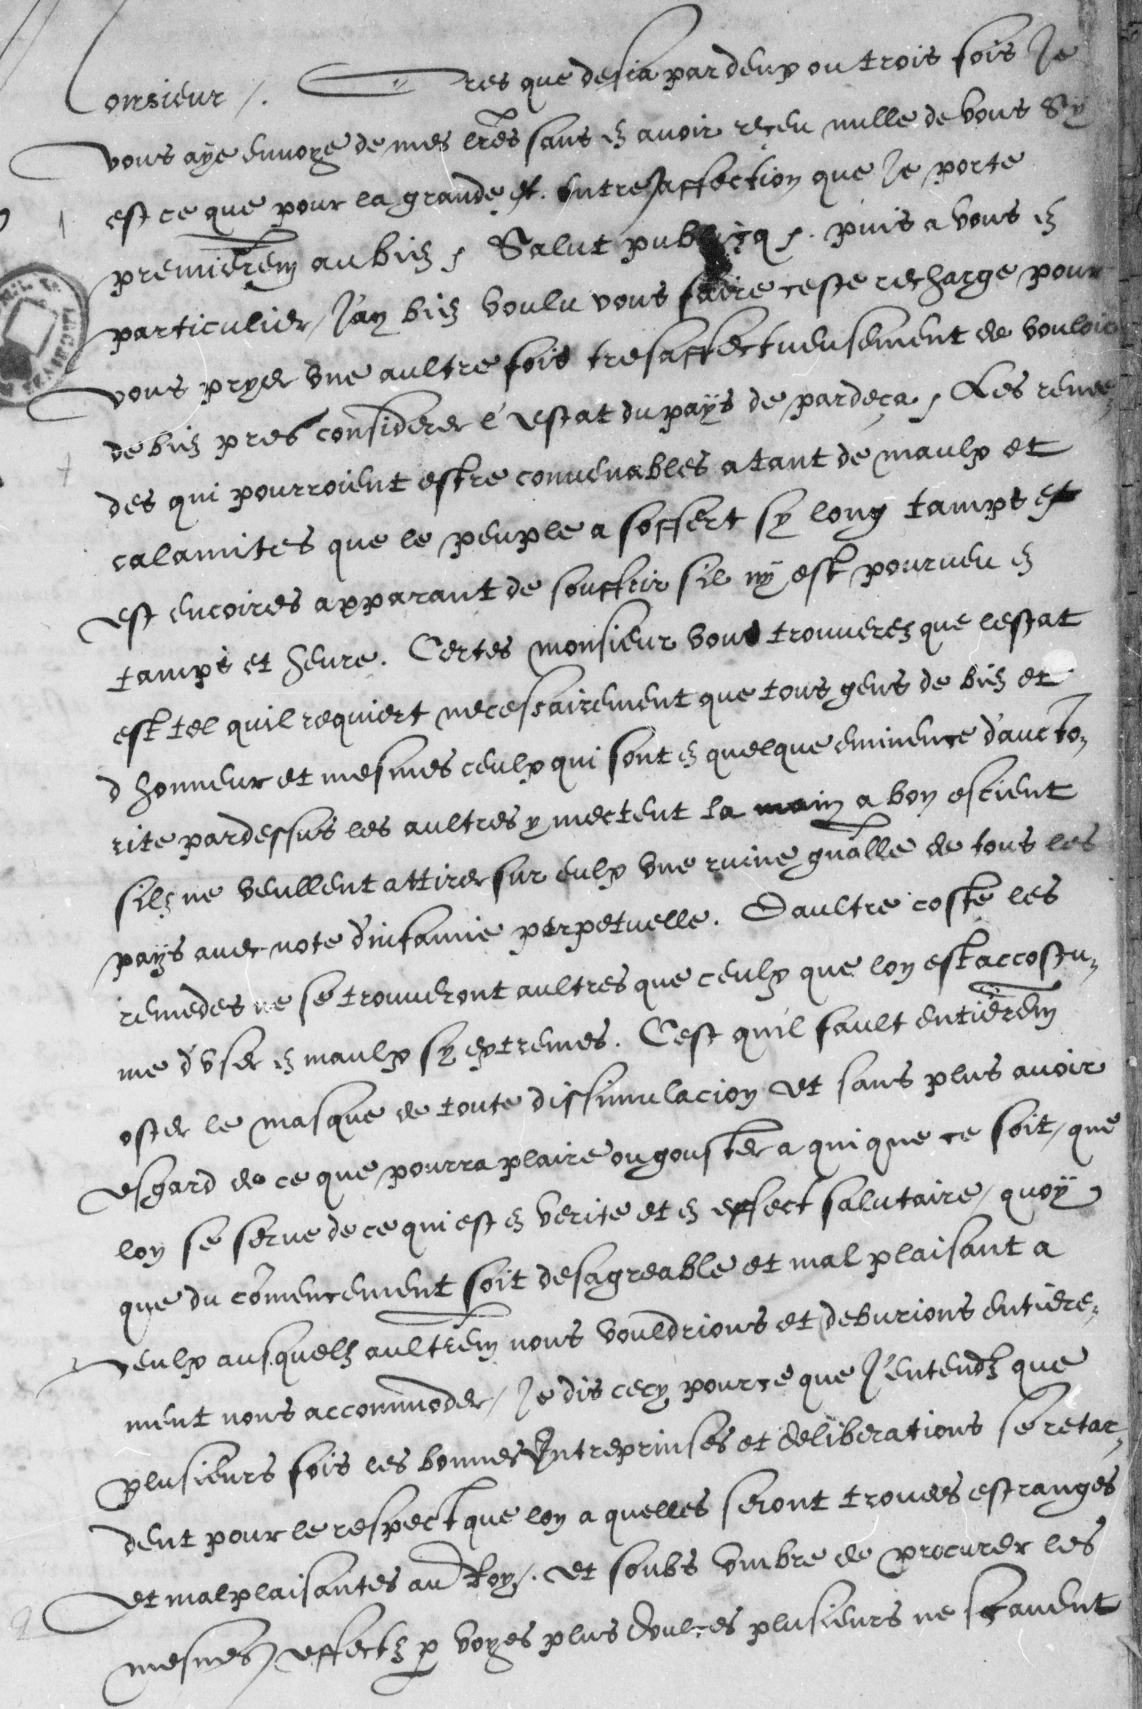 Monsieur /. Ores que desia par deux ou trois fois Je
vous aÿe enuoye de mes lres sans en auoir receu nulle de vous Sy
est ce que pour la grande et. entre affection que Je porte
premierem au bien, Salut publicq,. puis a vous en
particulier / J'ay bien voulu vous faire ceste recharge pour
vous pryer vne aultre fois tresaffectueusement de vouloir
de bien pres considerer l'estat du paÿs de pardeça, Les reme,
des qui pourroient estre conuenables a tant de maulx et
calamites que le peuple a soffert sy long tamps et
est encoires apparant de souffrir sil nÿ est pourueu en
tamps et heure. Certes monsieur vous trouuerez que lestat
est tel quil requiert necessairement que tous gens de bien et
d honneur et mesmes ceulx qui sont en quelque eminence d'aucto,
rite pardessus les aultres y mectent la main a bon escient
silz ne veullent attirer sur eulx vne ruine gnalle de tous les
paÿs auec note d'infamie perpetuelle. Daultre coste les
remedes ne se trouueront aultres que ceulx que lon est accostu,
me d'vser en maulx sy extremes. C'est qu'il fault entierem
oster le masque de toute dissimulacion et sans plus auoir
esgard de ce que pourra plaire ou gouster a qui que ce soit, que
lon se serue de ce qui est en verite et en effect salutaire, quoÿ
que du comencement soit desagreable et mal plaisant a
ceulx ausquelz aultrem nous vouldrions et deburions entiere,
ment nous accommoder, Je dis cecy pource que J'entendz que
plusieurs fois les bonnes Intreprinses et deliberations se retar,
dent pour le respect que lon a quelles seront trouues estranges
et malplaisantes au Roy,. et soubs vmbre de procurer les
mesmes effectz p voyes plus doulces plusieurs ne scauent